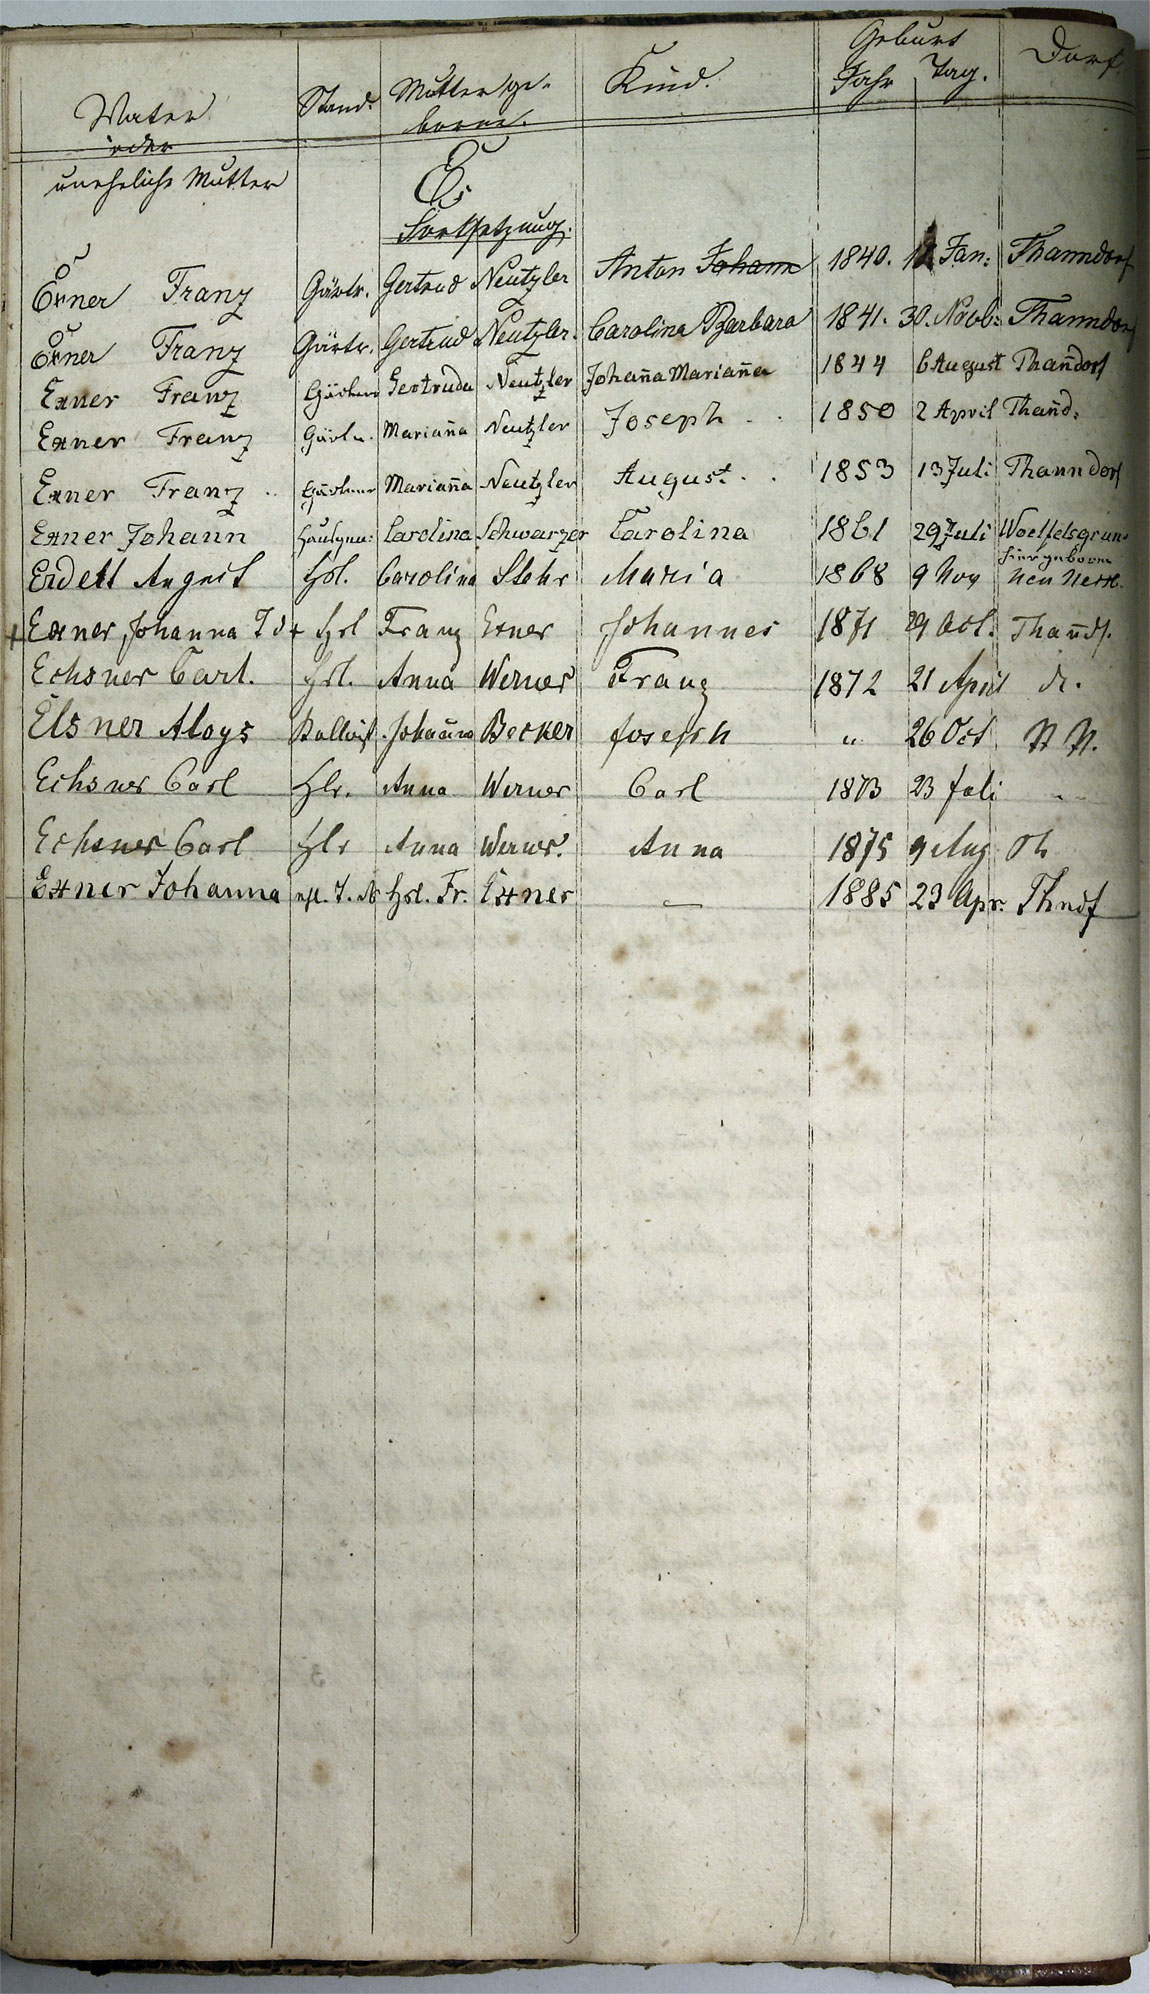 Vater Stand. Mutter ge- Kind. Geburt Dorf
oder borne. Jahr Tag.
uneheliche Mutter
E,
Fortsetzung.
Exner Franz Gärtr. Gertrud Neutzler Anton Johann 1840. Jan: Thanndorf
Exner Franz Gärtr. Gertrud Neutzler. Carolina Barbara 1841. 30. Novb: Thanndorf
Exner Franz Gärtner Gertruda Neutzler Johan̄a Marian̄a 1844 6 August Than̄dorf
Exner Franz Gärtn. Marian̄a Neutzler Joseph 1850 2 April Than̄d.
Exner Franz Gärtner Marian̄a Neutzler August 1853 13 Juli Thanndorf
Exner Johann Carolina Schwarzer Carolina 1861 29 Juli Woelfelsgrund
hier geboren
August Hsl. Carolina Stehr Maria 1868 9 Nov Neu
+ Exner, Johanna Hsl Franz Exner Johannes 1871 29 Oct. Than̄df.
Echsner Carl. Hsl. Anna Werner Franz 1872 21 April do.
Elsner Aloys Johan̄a Becker Joseph " 26 Oct N N.
Echsner Carl Hlr. Anna Werner Carl 1873 23 Juli "
Echsner Carl Hlr Anna Werner. Anna 1875 9 Aug Th
Exner Johanna Hsl. Fr. Exner — 1885 23 Apr. Thndf